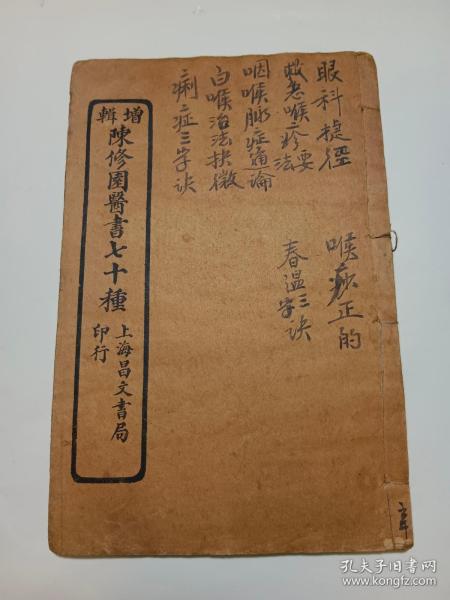 眼科捷徑
救急喉疹要法
咽喉脉症通論
白喉治法抉微
痢症三字诀
喉痧正的
春温三字诀
增輯
陳修園醫書七十種
上海昌文書局
印行
孔夫子旧书网
www.kongfz.com